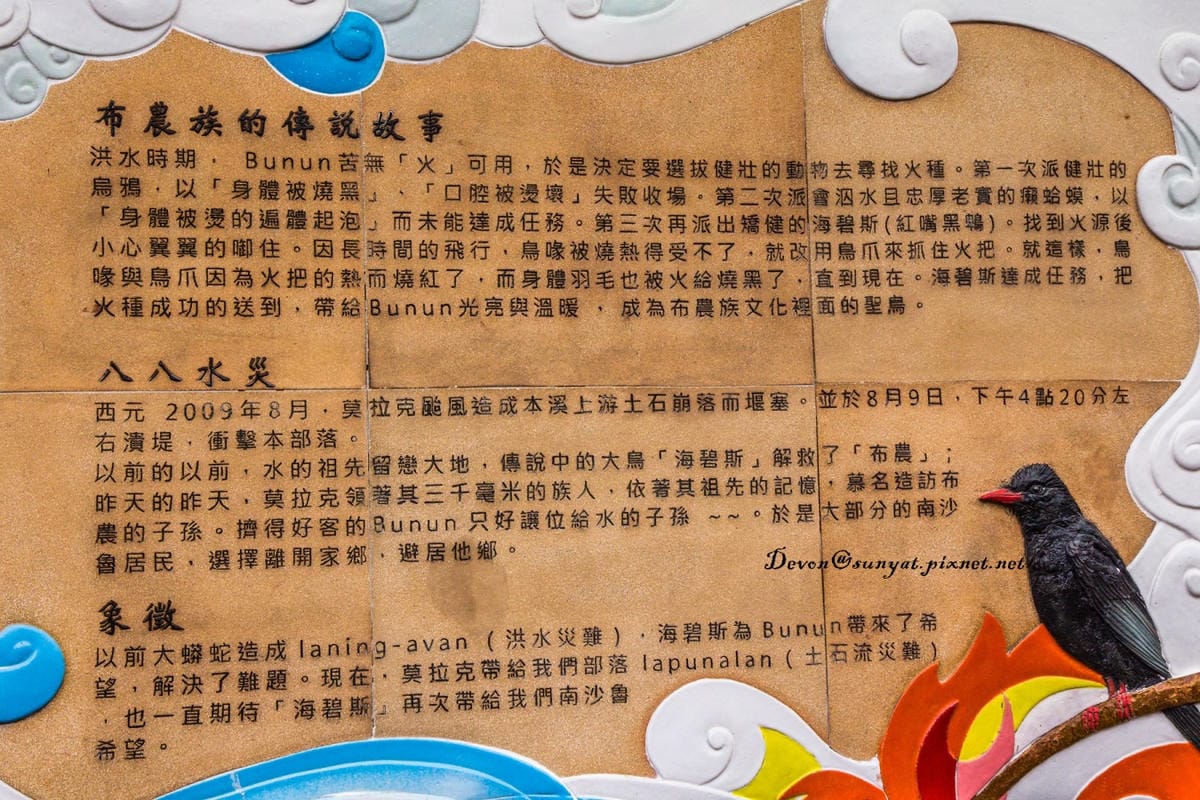 布農族的傳說故事
洪水時期， Bunun苦無「火」可用，於是決定要選拔健壯的動物去尋找火種。第一次派健壯的
烏鴉，以「身體被燒黑」、「口腔被燙壞」失敗收場。第二次派會泅水且忠厚老實的癩蛤蟆，以
「身體被燙的遍體起泡」而未能達成任務。第三次再派出矯健的海碧斯(紅嘴黑鵯)。找到火源後
小心翼翼的啣住。因長時間的飛行，鳥喙被燒熱得受不了，就改用鳥爪來抓住火把。就這樣，鳥
喙與鳥爪因為火把的熱而燒紅了，而身體羽毛也被火給燒黑了，直到現在。海碧斯達成任務，把
火種成功的送到，帶給Bunun光亮與溫暖 ，成為布農族文化裡面的聖鳥。
八八水災
西元 2009年8月，莫拉克颱風造成本溪上游土石崩落而堰塞。並於8月9日，下午4點20分左
右潰堤，衝擊本部落。
以前的以前，水的祖先留戀大地，傳說中的大鳥「海碧斯」解救了「布農」；
昨天的昨天，莫拉克領著其三千毫米的族人，依著其祖先的記憶，慕名造訪布
農的子孫。擠得好客的Bunun 只好讓位給水的子孫 ~~。於是大部分的南沙
魯居民，選擇離開家鄉，避居他鄉。
Devon@sunyat.pixnet.net
象徵
以前大蟒蛇造成 laning-avan（洪水災難），海碧斯為 Bunun帶來了希
望，解決了難題。現在，莫拉克帶給我們部落 lapunalan（土石流災難）
，也一直期待「海碧斯」再次帶給我們南沙魯
希望。